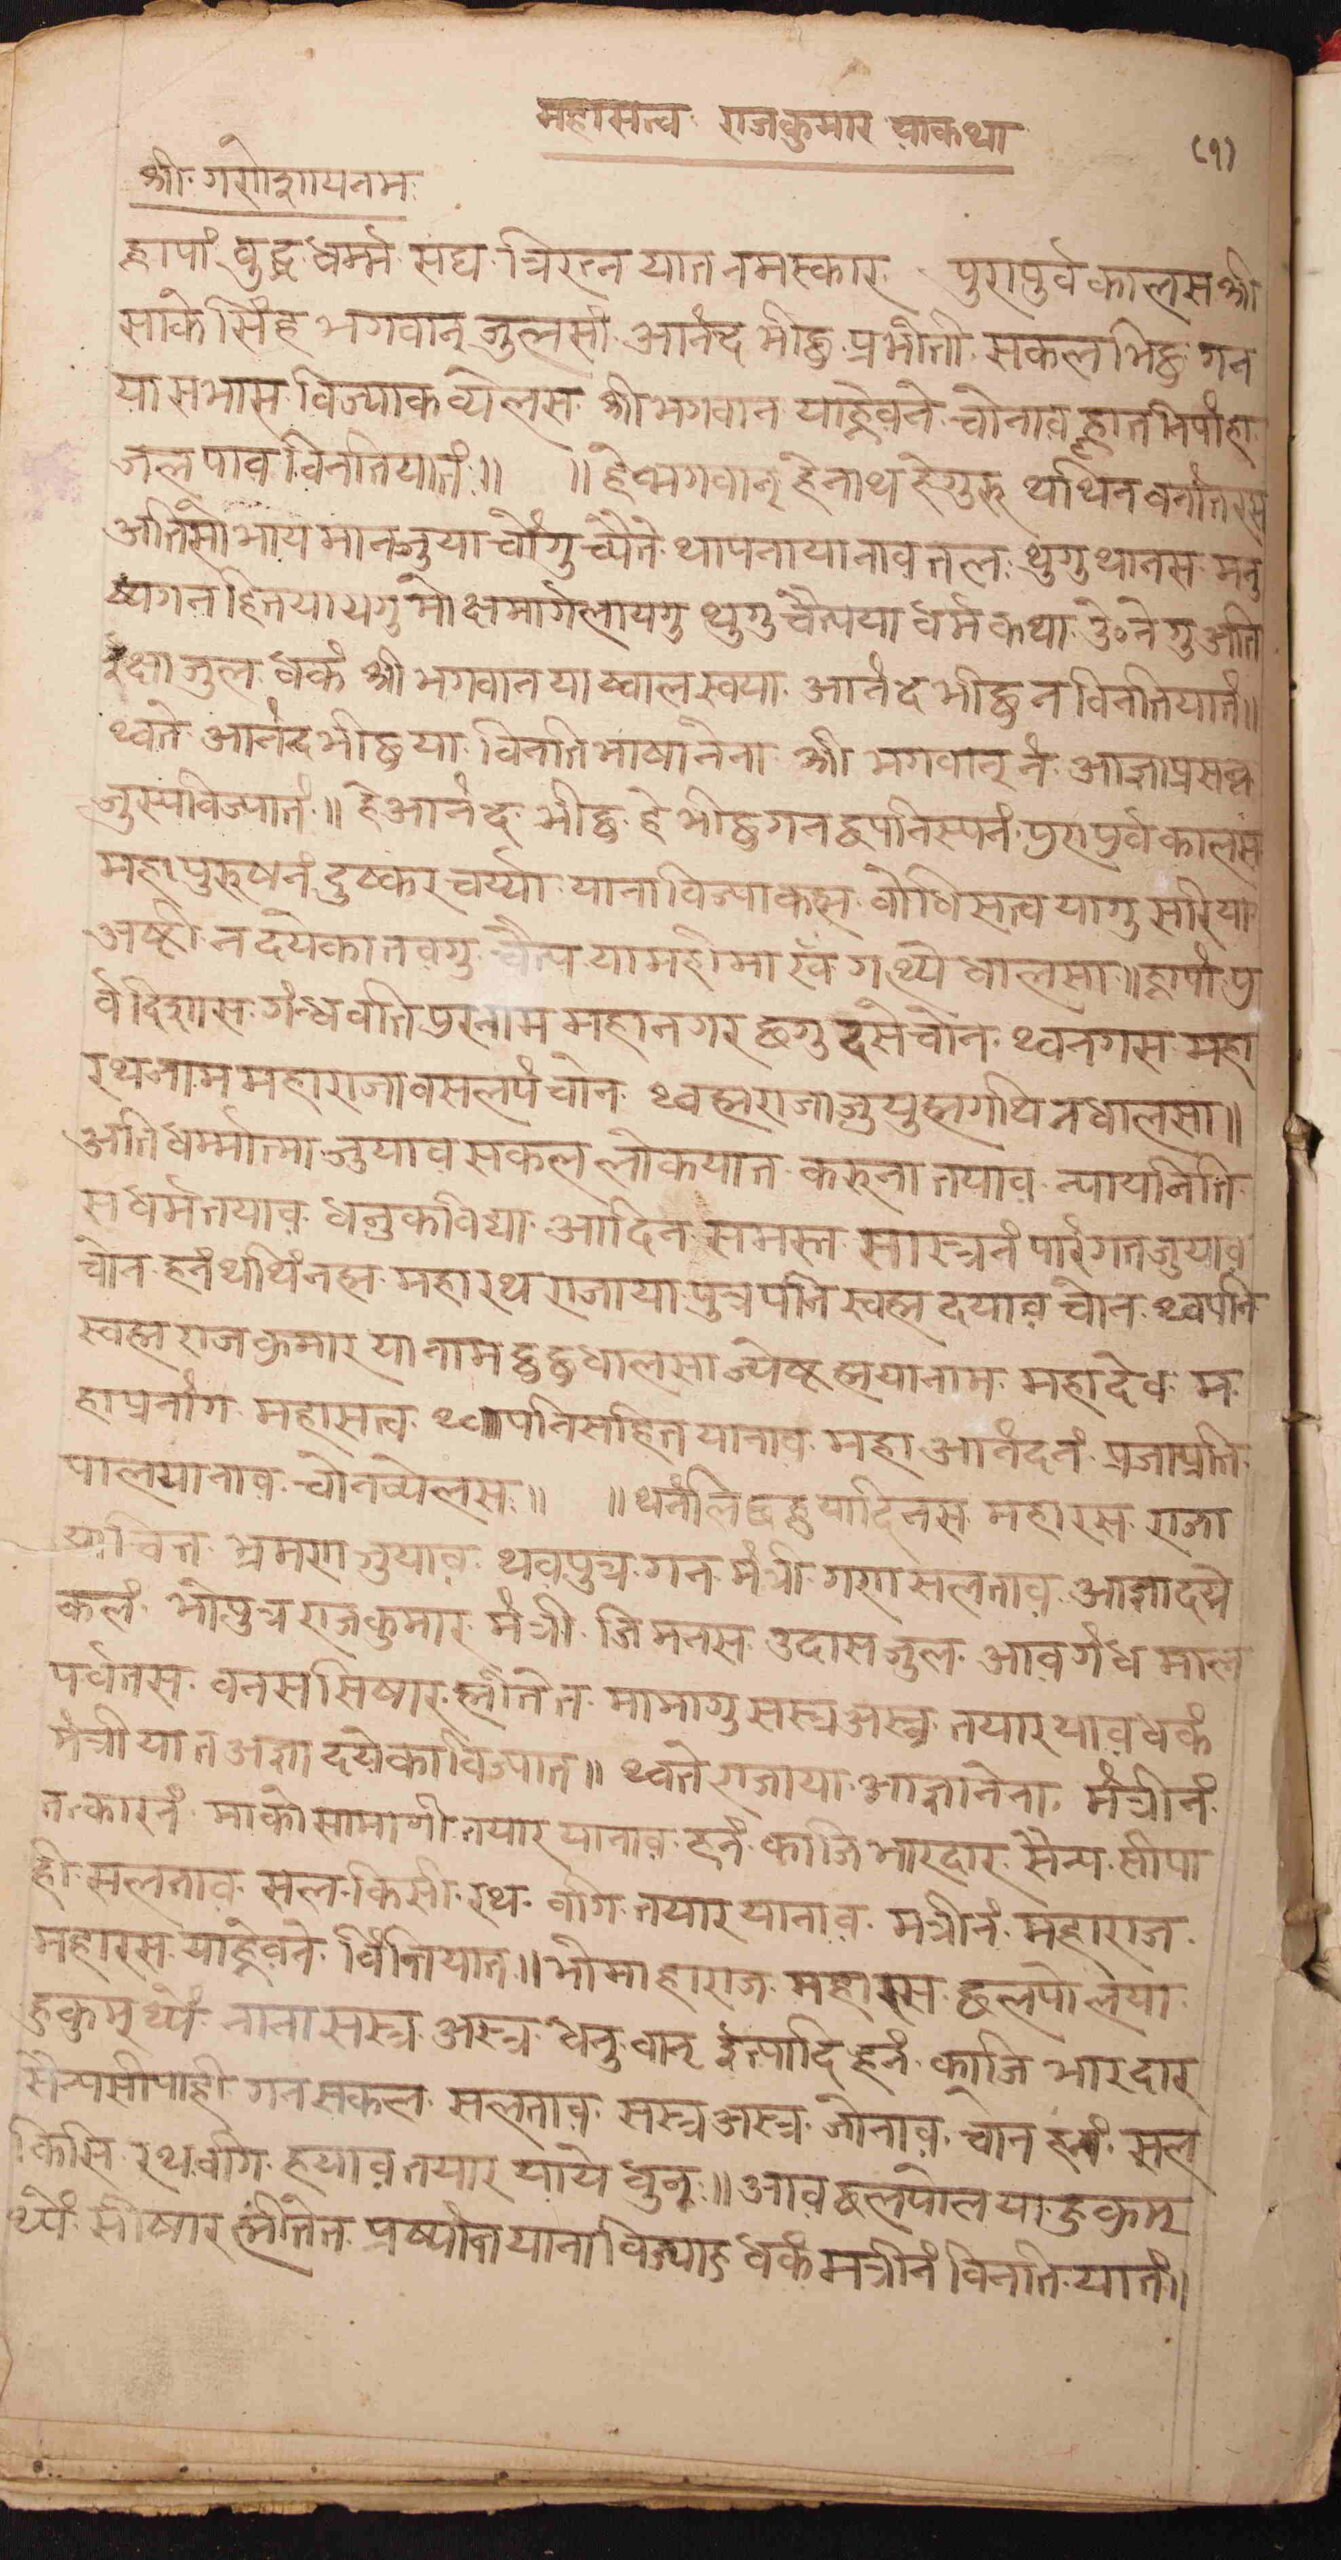 महासत्व राजकुमार याकथा
(१)
श्री गणेशायनम
ह्नापां बुद्ध धर्म्म संघ त्रिरत्न यात नमस्कार पुरापुर्व कालस श्री
साके सिंह भगवान् जुलसां आनंद भीछु प्रभीती सकल भिछु गन
या सभास विज्याक व्येलस श्री भगवान याह्नेवने चोनाव ह्लातभिपांहा
जलपाव विनतियातं ॥ ॥ हे भगवान् हेनाथ हेगुरु थथिन वनांतरस
अतिसोभायमान जुया चोंगु च्यैते थापनायानाव तल थुगु थानस मनु
ष्यगन हितयायगु मोक्षमार्गलायगु थुगु चैत्यया धर्मकथा ङेने गु अति
ईक्षा जुल धकं श्री भगवान या ख्वालस्वया आनंद भीछु न विनतियातं ॥
थ्वते आनंद भीछु या विनति भाषा नेना श्री भगवान् नं आज्ञाप्रसन्न
जुस्यविज्यातं ॥ हेआनंद भीछु हे भीछु गन छपनिस्यनं पुरापुर्व कालस
महापुरुषनं दुष्कर चर्य्या याना विज्याकह्म बोधिसत्व यागु सरिया
अष्टी न दयेकातवगु चैत्य यामहीमा खँ गथ्ये धालसा ॥ ह्नापां पु
र्व दिशास गंन्धर्वति पुरनाम महानगर छगु दसेचोन थ्वनगस महा
रथनाम महाराजा वसलपं चोन थ्वह्मराजा जुयुह्म गथिन धालसा ॥
अतिधर्म्मात्मा जुयाव सकल लोकयात करुना तयाव न्यायनिति
सधर्मतयाव धनुकविद्या आदिन समस्त सास्त्रनं पारंगत जुयाव
चोन हनं थथिंनह्म महारथ राजाया पुत्रपनि स्वह्म दयाव चोन थ्वपनि
स्वह्म राजकुमार यानाम छुछु धालसा ज्येष्ठह्मयानाम महादेव म
हाप्रनांग महासत्व थ्वपनिसहित यानाव महा आनंदनं प्रजाप्रति
पालयानाव चोनव्येलस ॥ ॥ थनंलि छह्नुयादिनस महारस राजा
या चित्त भ्रमण जुयाव थवपुत्र गन मंत्री गण सलताव आज्ञादये
कलं भोपुत्र राजकुमार मंत्री जि मनस उदास जुल आव गंध माल
पर्वतस वनस सिषार ह्मीतेत मामागु सस्त्र अस्त्र तयारयाव धकं
मंत्रीयात अज्ञा दयेका विज्यात ॥ थ्वते राजाया आज्ञानेना मंत्रीनं
तत्कारनं माको सामागी तयार यानाव हनं काजि भारदार सैन्य सीपा
ही सलताव सल किसी रथ वगि तयार यानाव मत्रीनं महाराज
महारस याह्नेवने विंतियात ॥ भोमाहाराज महारस छलपोलया
हुकुमथ्यें नाना सस्त्र अस्त्र धनु वान् ईत्यादि हनं काजि भारदार
सैन्यसीपाही गन सकल सलताव सस्त्र अस्त्र जोनाव चोन हनं सल
किसि रथ वगि हयाव तयार याये धुन ॥ आव छलपोल या हुकुम्
थ्यें सीषार ह्मीतेत प्रष्थांन याना विज्याहु धकं मत्रीनं विनति यातं ॥